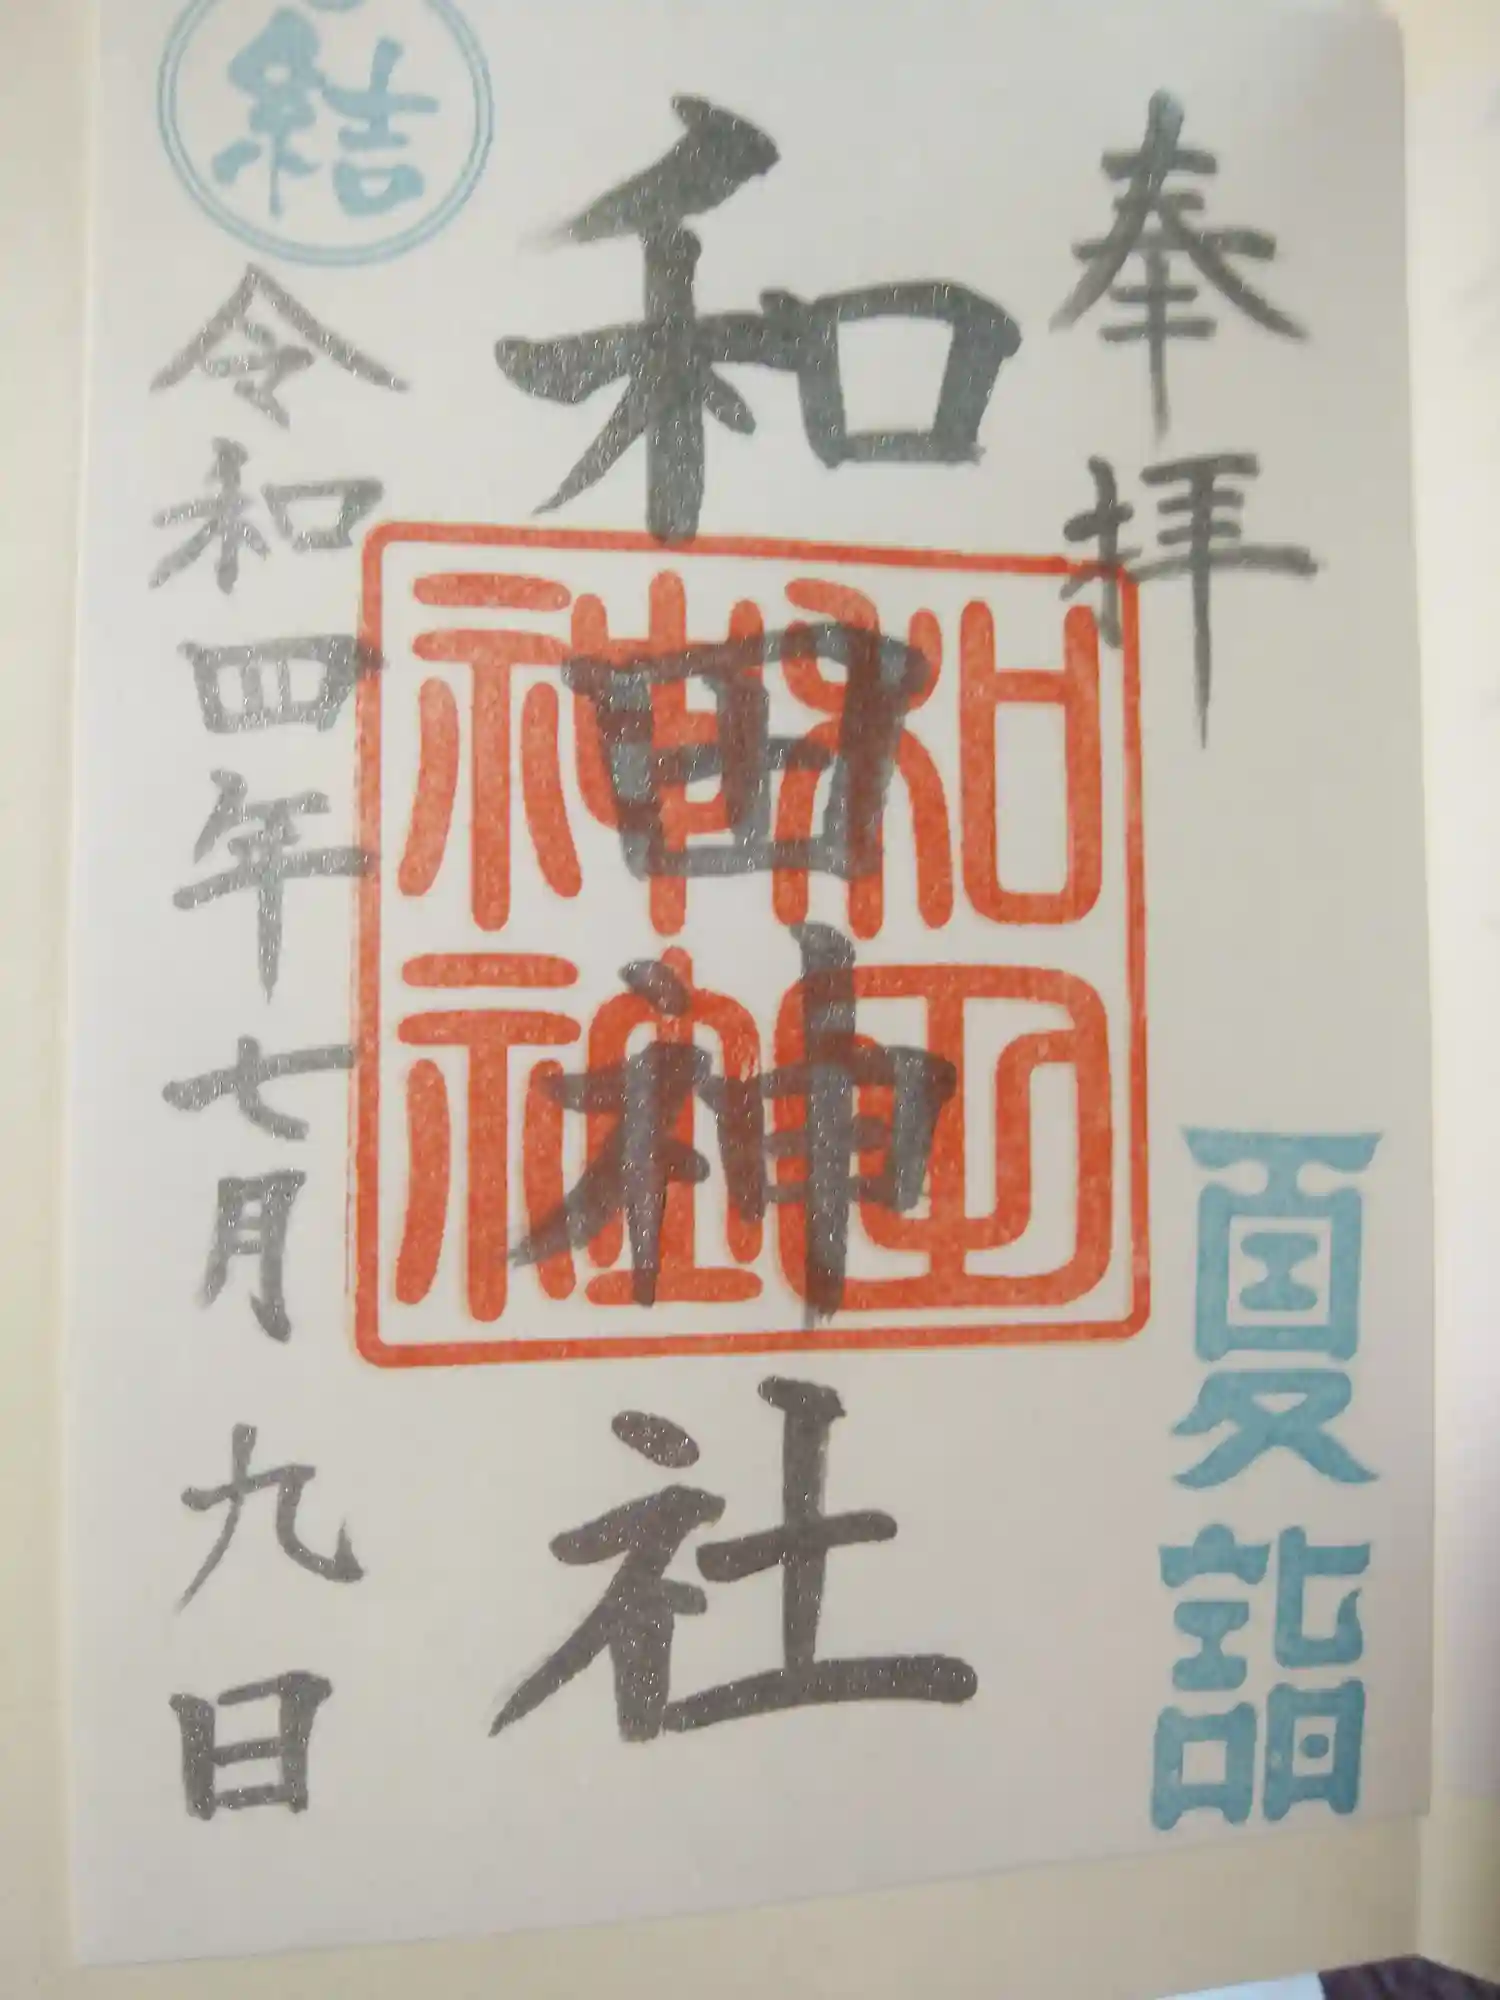 奉拝
夏詣
和田神社
和田
神社
結
令和四年七月九日